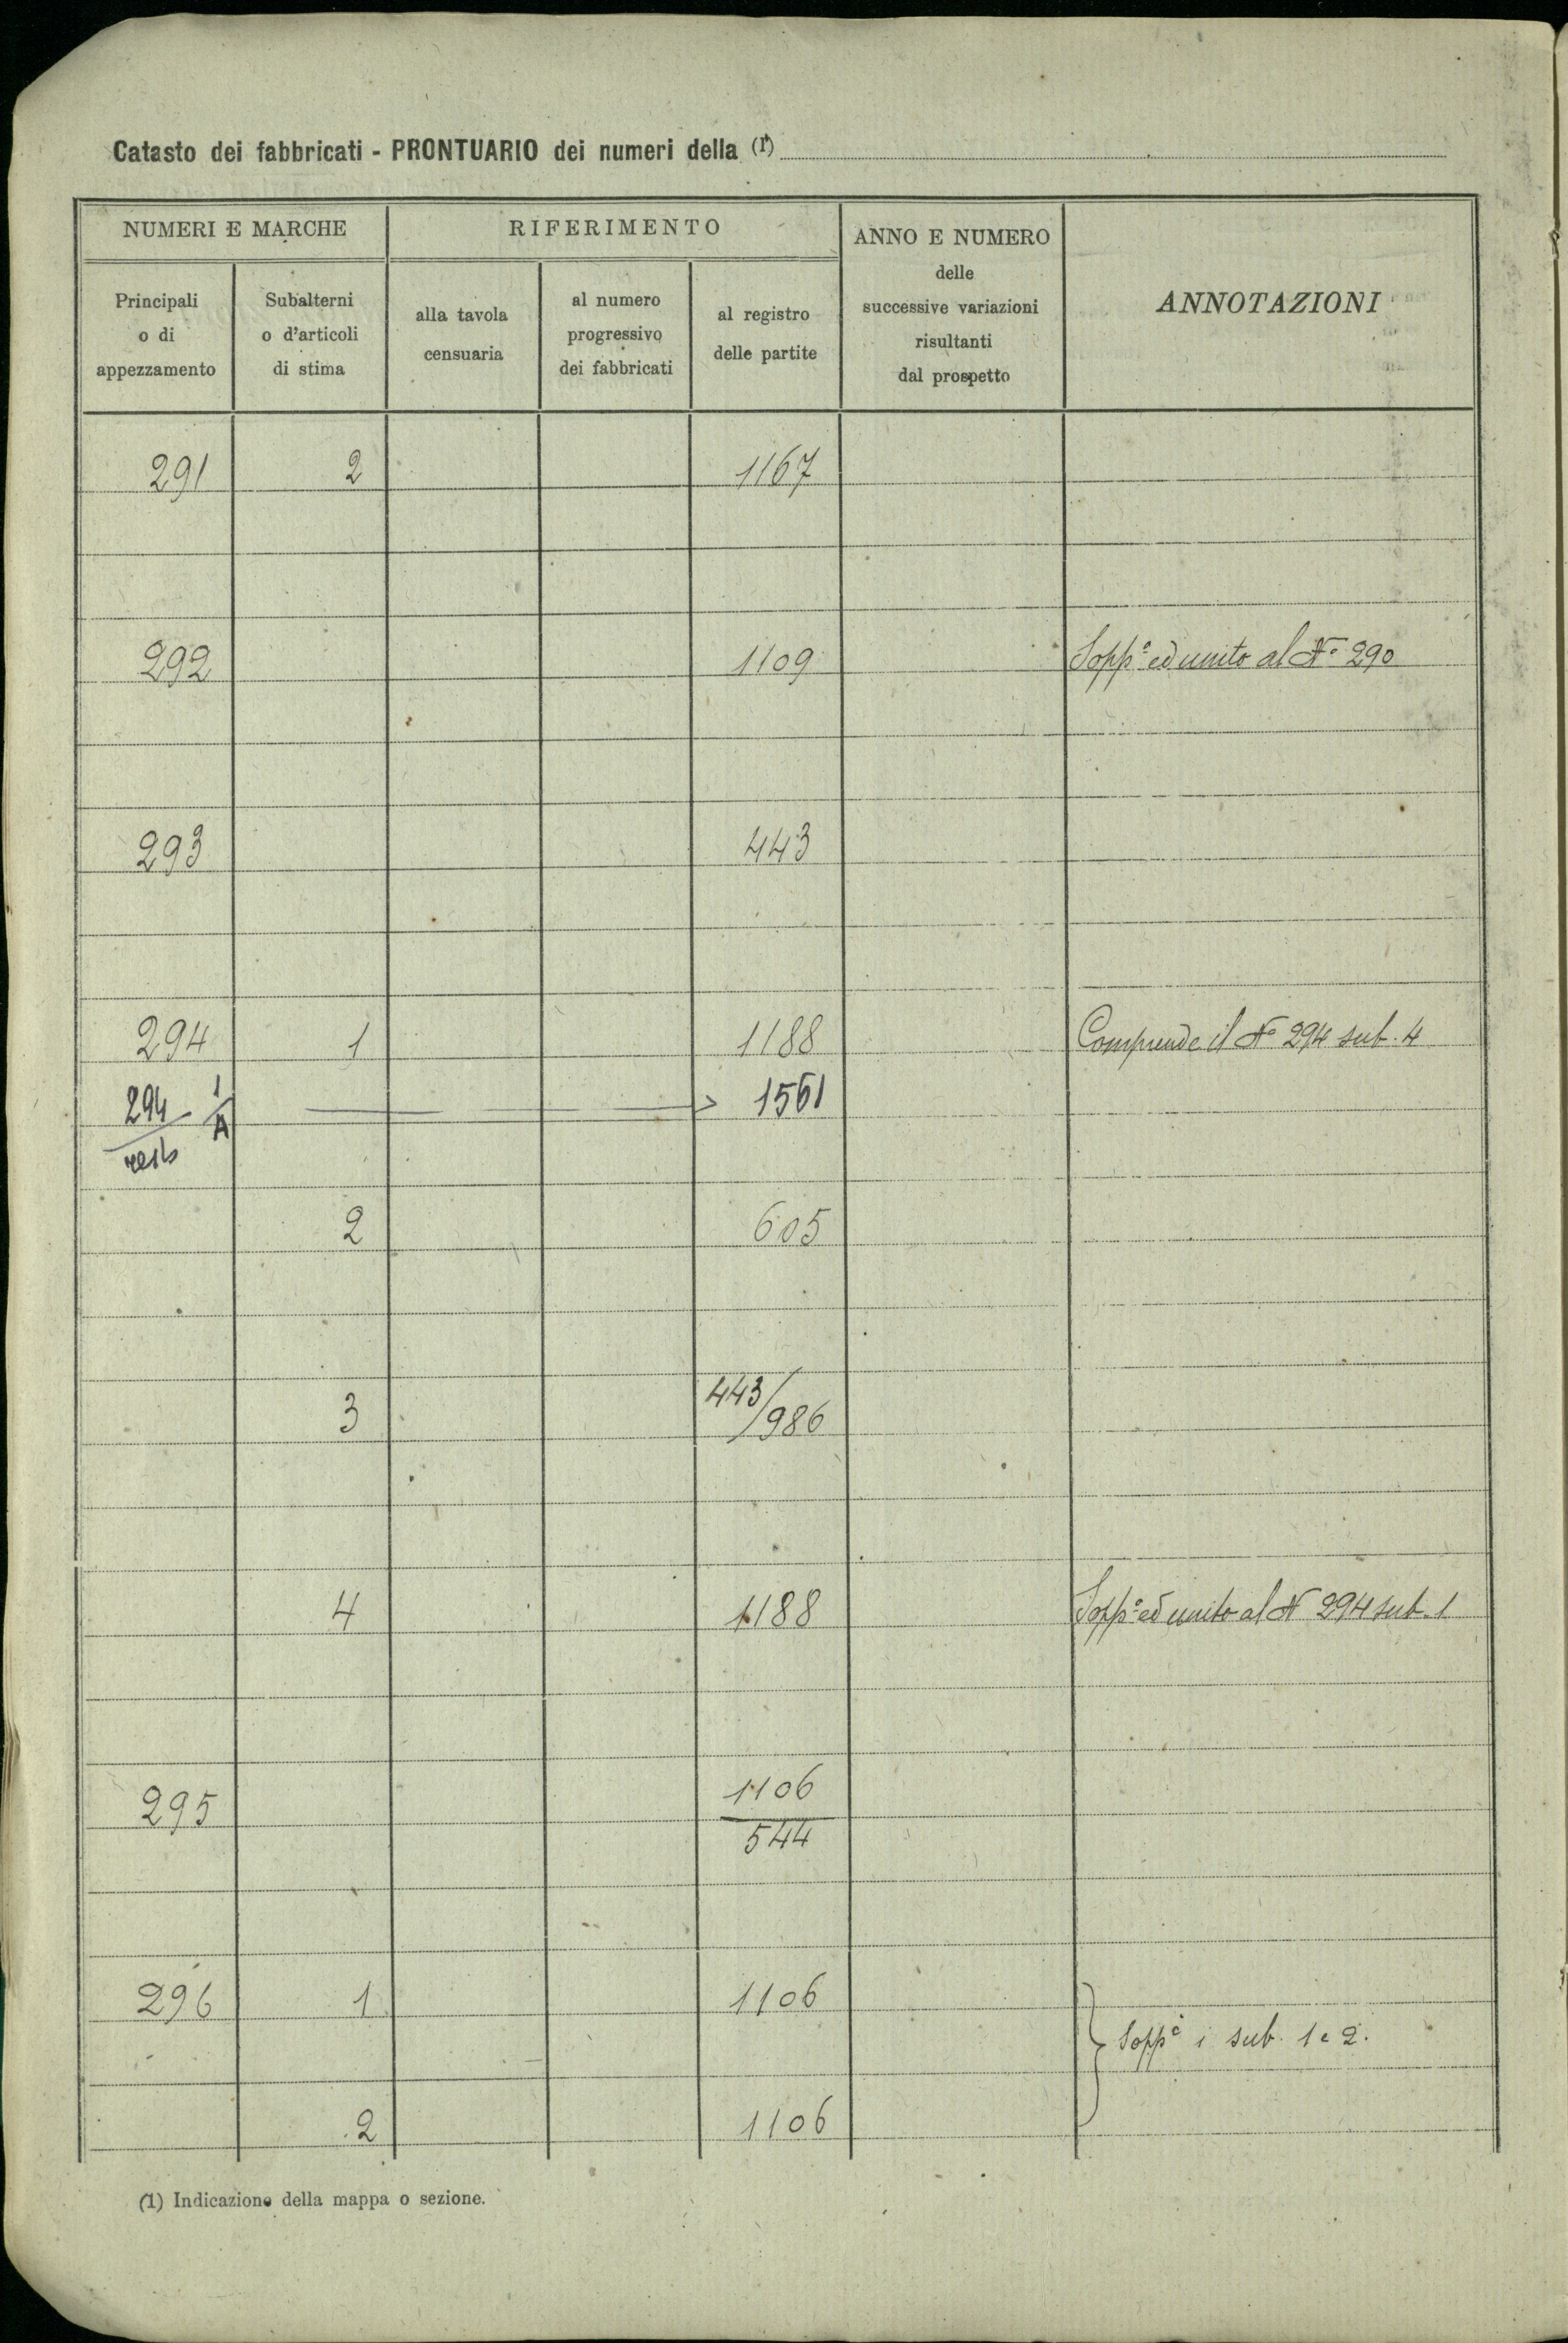 Catasto dei fabbricati - PRONTUARIO dei numeri della (1)
NUMERI E MARCHE
RIFERIMENTO
ANNO E NUMERO
delle
successive variazioni
risultanti
dal prospetto
ANNOTAZIONI
Principali
o di
appezzamento
Subalterni
o d'articoli
di stima
alla tavola
censuaria
al numero
progressivo
dei fabbricati
al registro
delle partite
291 2 1167
292 1109 Sopp.° ed unito al N° 290
293 443
294 1 1188 Comprende il N° 294 sub. 4
294 1/A 1561
2 605
3 443/986
4 1188 Sopp.° ed unito al N 294 sub. 1
295 1106
544
296 1 1106
Sopp.i i sub. 1 e 2.
2 1106
(1) Indicazione della mappa o sezione.